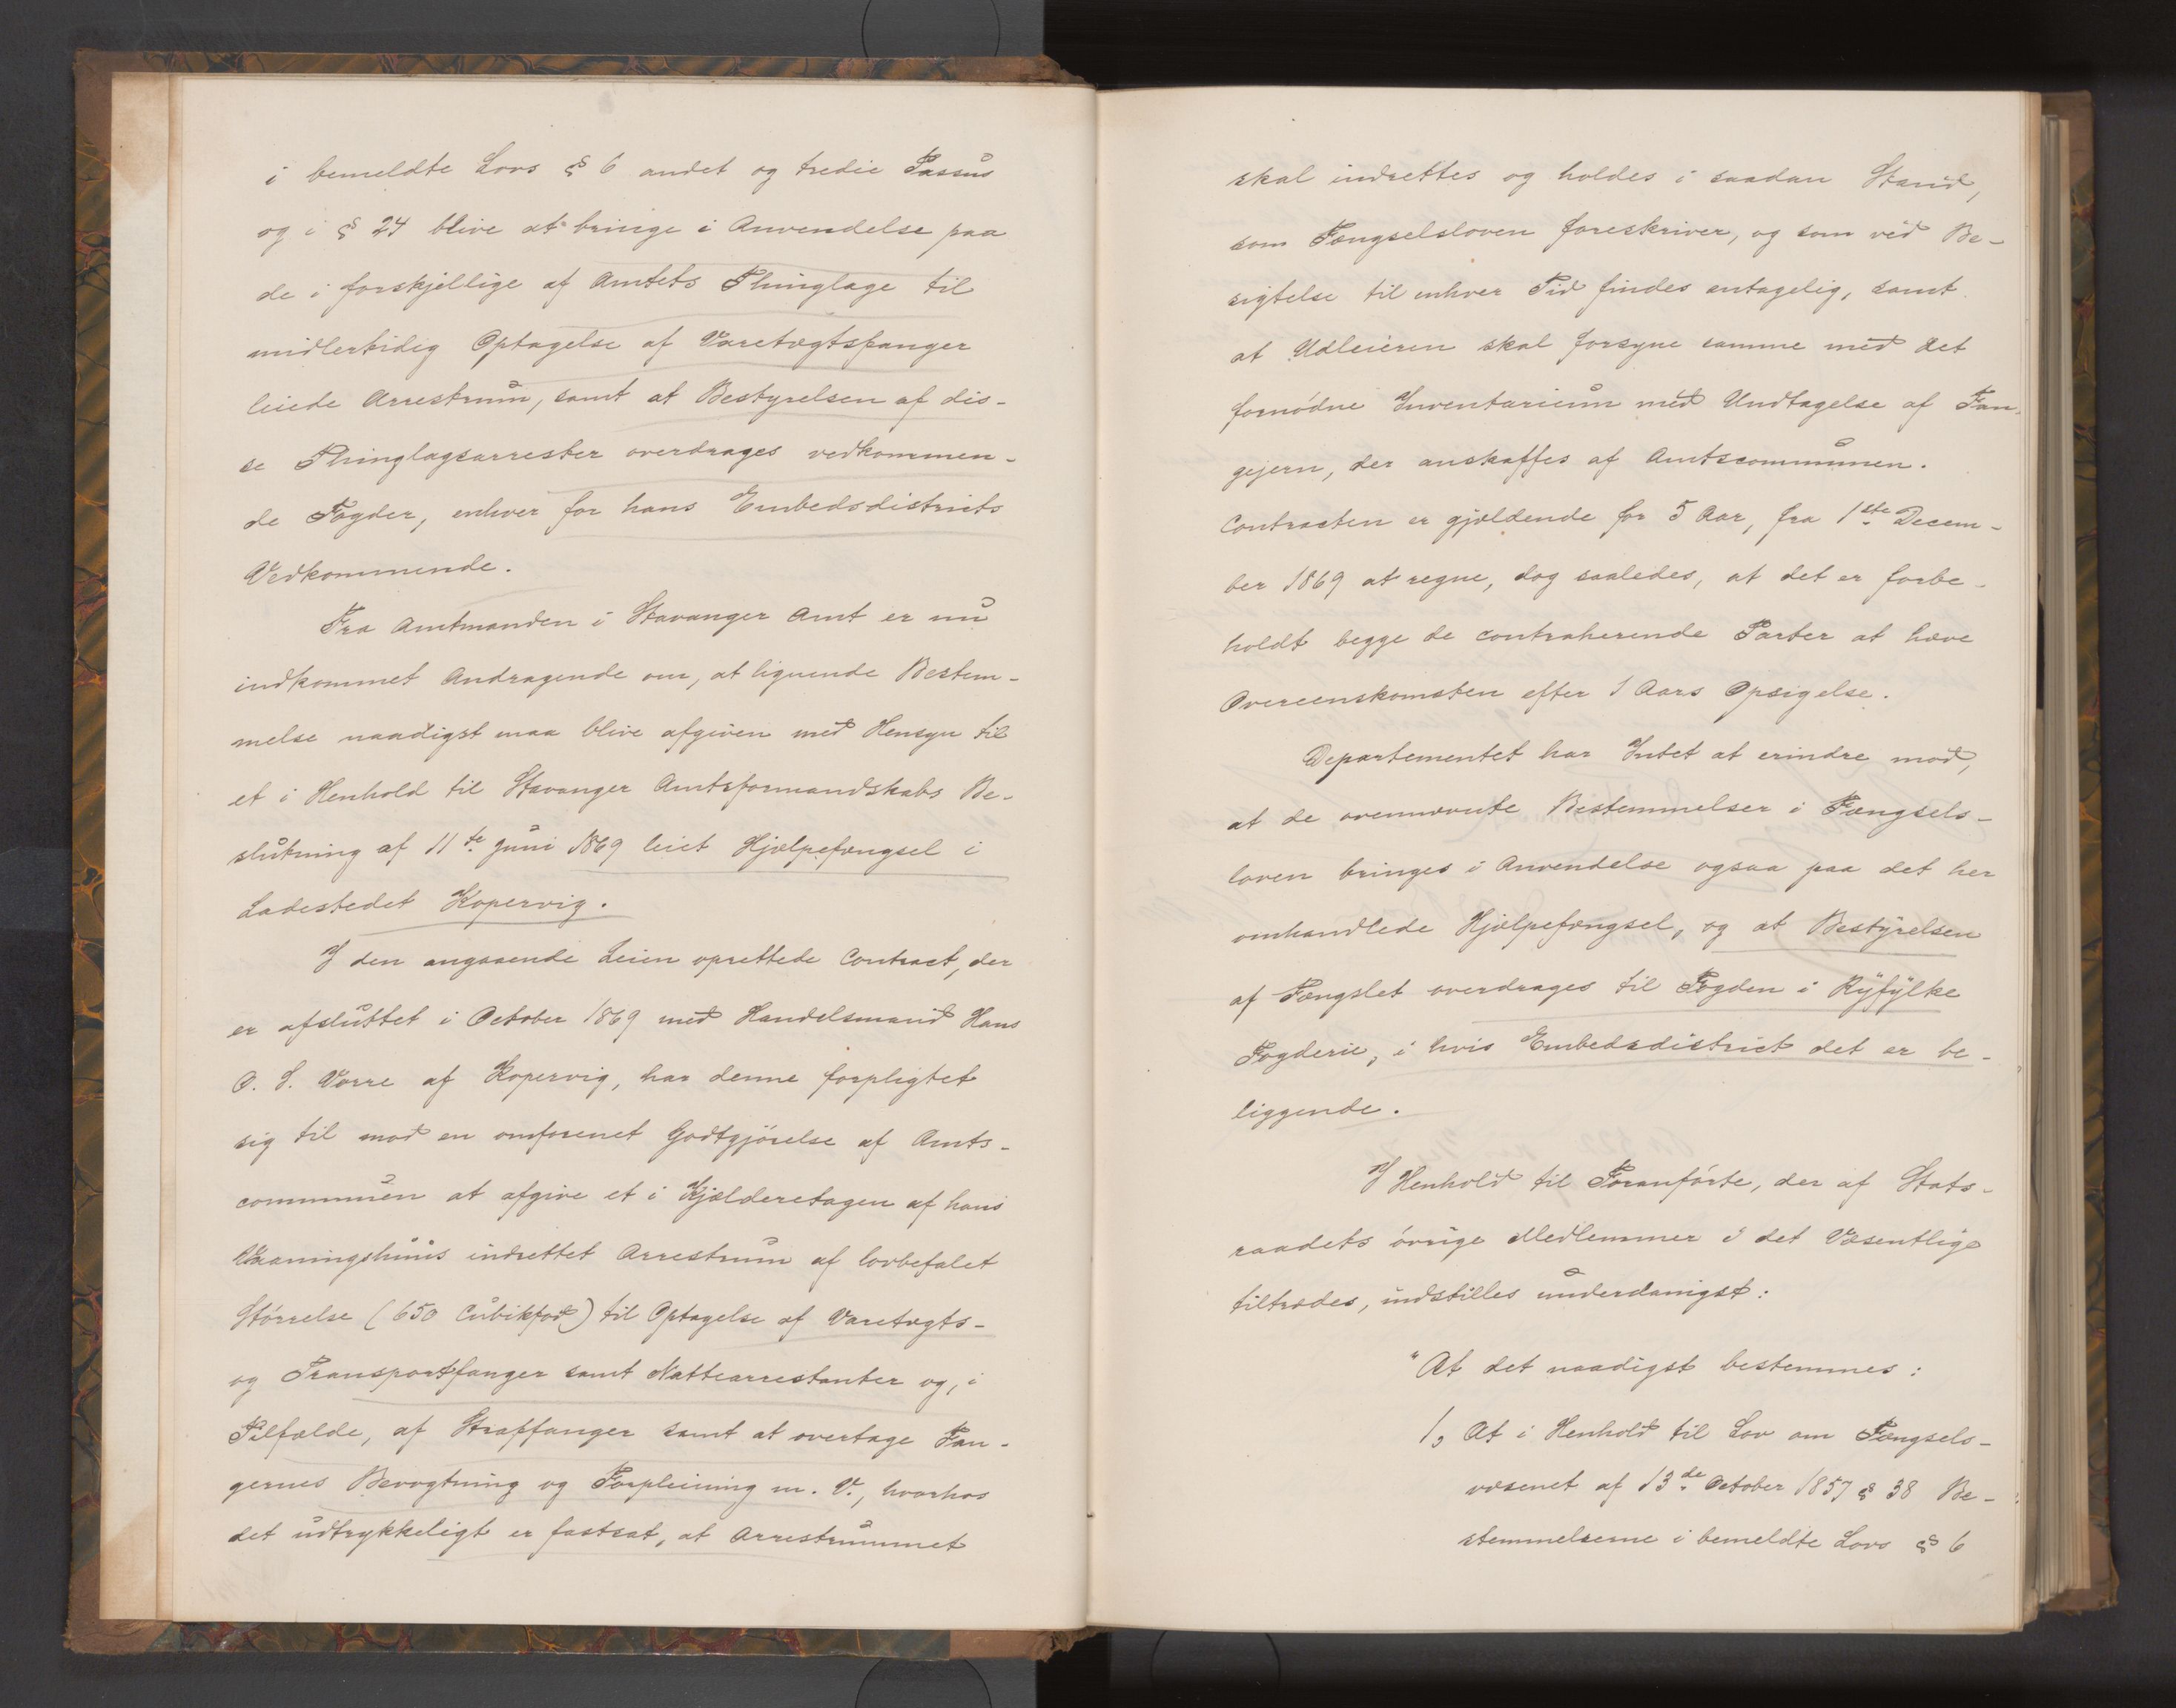 i bemeldte Lovs § 6 andet og tredie Passus
og i § 24 blive at bringe i Anvendelse paa
de i forskjellige af Amtets Thinglage til
midlertidig Optagelse af Varetægtsfanger
leiede Arrestrum, samt at Bestyrelsen af dis-
se Thinglagsarrester overdrages vedkommen-
de Fogder, enhver for hans Embedsdistricts
Vedkommende.
Fra Amtmanden i Stavanger Amt er nu
indkommet Andragende om, at lignende Bestem-
melse naadigst maa blive afgiven med Hensyn til
et i Henhold til Stavanger Amtsformandskabs Be-
slutning af 11te Juni 1869 leiet Hjælpefængsel i
Ladestedet Kopervig.
I den angaaende Leien oprettede Contract, der
er afsluttet i October 1869 med Handelsmand Hans
O. S. Vorre af Kopervig, har denne forpligtet
sig til mod en omforenet Godtgjörelse af Amts-
communen at afgive et i Kjælderetagen af hans
Vaaningshuus indrettet Arrestrum af lovbefalet
Störrelse (650 Cubikfod) til Optagelse af Varetægts-
og Transportfanger samt Nattearrestanter og, i
Tilfælde, af Straffanger samt at overtage Fan-
gernes Bevogtning og Forpleining m. V., hvorhos
det udtrykkeligt er fastsat, at Arrestrummet
skal indrettes og holdes i saadan Stand,
som Fængselsloven foreskriver, og som ved Be-
sigtelse til enhver Tid findes antagelig, samt
at Udleieren skal forsyne samme med det
fornödne Inventarium med Undtagelse af Fan-
gejern, der anskaffes af Amtscommunen.
Contracten er gjældende for 5 Aar, fra 1ste Decem-
ber 1869 at regne, dog saaledes, at det er forbe-
holdt begge de contraherende Parter at hæve
Overeenskomsten efter 1 Aars Opsigelse.
Departementet har Intet at erindre mod,
at de ovennævnte Bestemmelser i Fængsels-
loven bringes i Anvendelse ogsaa paa det her
omhandlede Hjælpefængsel, og at Bestÿrelsen
af Fængslet overdrages til Fogden i Rÿfÿlke
Fogderie, i hvis Embedsdistrict det er be-
liggende.
I Henhold til Foranförte, der af Stats-
raadets övrige Medlemmer i det Væsentlige
tiltrædes, indstilles underdanigst:
"At det naadigst bestemmes:
1, At i Henhold til Lov om Fængsels-
væsenet af 13de October 1857 § 38 Be-
stemmelserne i bemeldte Lovs § 6